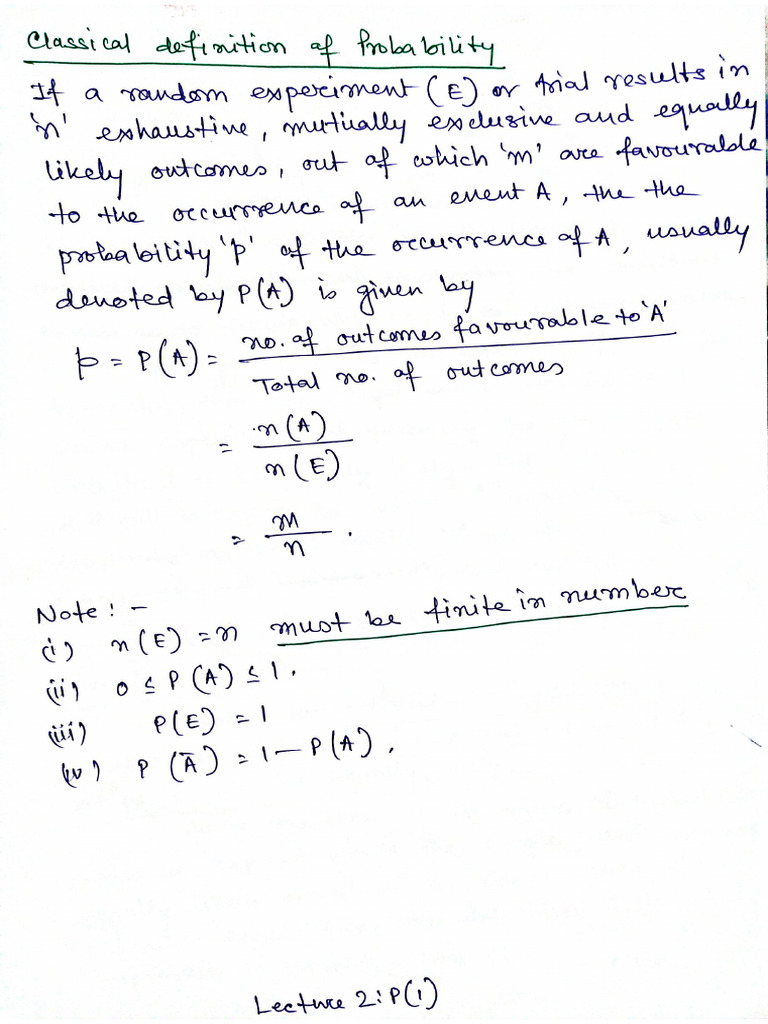 Classical definition of Probability
If a random experiment (E) or trial results in
'n' exhaustive, mutually exclusive and equally
likely outcomes, out of which 'm' are favourable
to the occurrence of an event A, the the
probability 'p' of the occurrence of A, usually
denoted by P(A) is given by
p = P(A) = no. of outcomes favourable to 'A'
Total no. of outcomes
= n(A)
n(E)
= m
n .
Note : -
(i) n(E) = n must be finite in number
(ii) 0 ≤ P(A) ≤ 1.
(iii) P(E) = 1
(iv) P(Ā) = 1 - P(A).
Lecture 2: P(1)